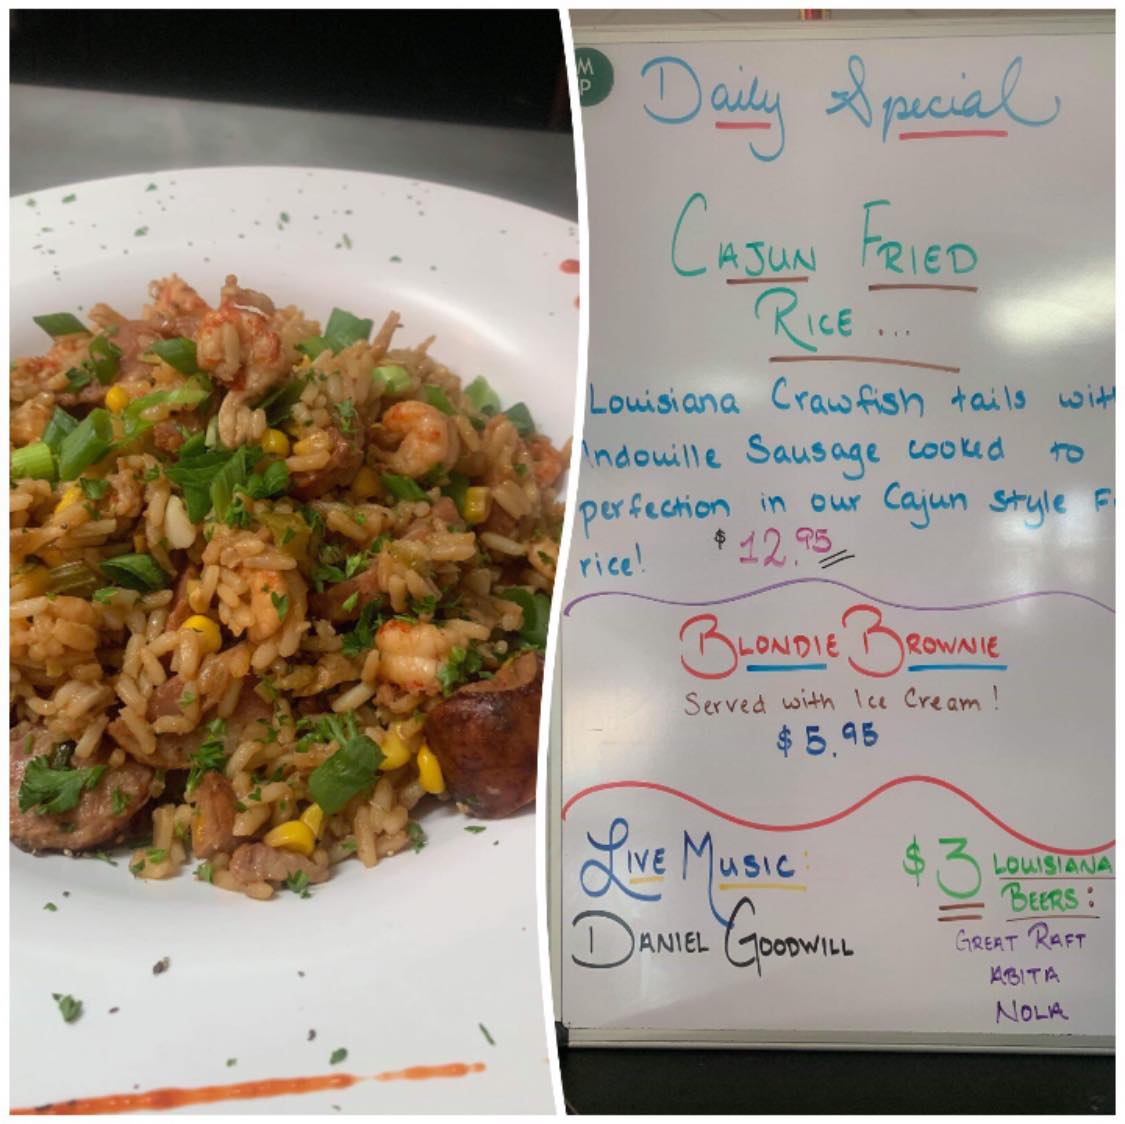 M
P
Daily Special
CAJUN FRIED
RICE ...
Louisiana Crawfish tails wit
ndouille Sausage cooked to
perfection in our Cajun Style F
rice! $12.95
BLONDIE BROWNIE
Served with Ice Cream!
$5.95
LIVE MUSIC:
DANIEL GOODWILL
$3 LOUISIANA
BEERS:
GREAT RAFT
ABITA
NOLA